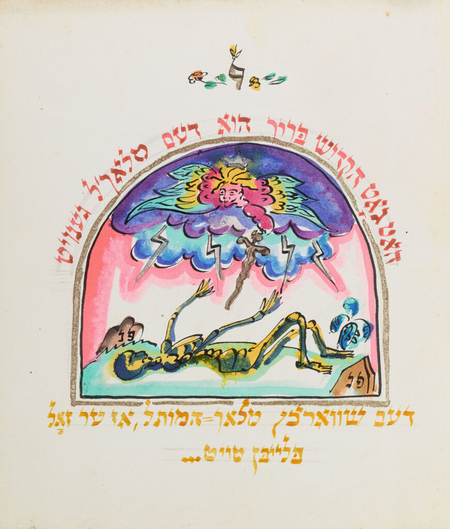 ל
האָט גאָט הקדוש ברוך הוא דעם מלאך'ל געטויט
פנ
פנ
דעם שווארצן מלאך-המותל, אז ער זאָל
בלייבן טויט...